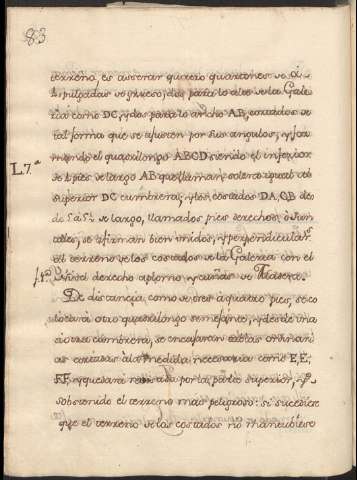 83
terreña, es asserar quatro quartones de à
pulgadas de grueso; dos para lo alto de la Gale
ria como DC, y dos para lo ancho AB, cortados de
tal forma que se ajusten por sus angulos; y for
mando el quadrilongo ABCD, siendo el inferior
de 4 pies de largo AB que llaman solero igual al
superior DC cumbrera; y los costados DA, CB de
de 5 à 5½ de largo, llamados pies derechos, ò
se afirman bien unidos, y perpendicular
el terreno de los costados de la Galeria con el
L 7.ª
Nivel derecho aplomo, y cuñas de Madera.
De distancia, como de tres à quatro pies, se co
locarà otro quadrilongo semejante, y desde una
à otra cumbrera, se encajaran tablas ordinari
as cortadas à la medida necesaria como EE,
FF, y quedarà por la parte superior, y
sobstenido el terreno mas peligroso: si sucediere
que el terreno de los costados no mantubiese